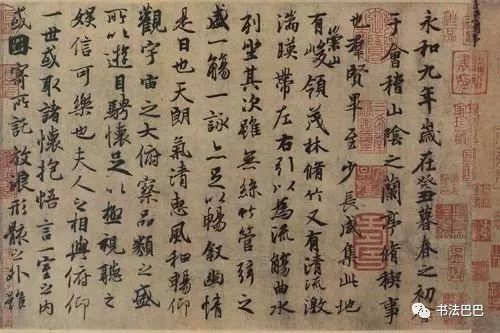 永和九年歲在癸丑暮春之初
于會稽山陰之蘭亭脩稧事
也群賢畢至少長咸集此地
有崇山峻領茂林脩竹又有清流激
湍暎帶左右引以為流觴曲水
列坐其次雖無絲竹管弦之
盛一觴一詠亦足以暢叙幽情
是日也天朗氣清惠風和暢仰
觀宇宙之大俯察品類之盛
所以遊目騁懷足以極視聽之
娛信可樂也夫人之相與俯仰
一世或取諸懷抱悟言一室之內
或因寄所託放浪形骸之外雖
书法巴巴